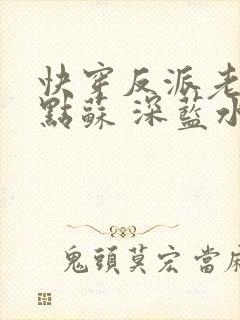 快穿反派老
點蘇 深藍水
鬼頭莫宏 當麻